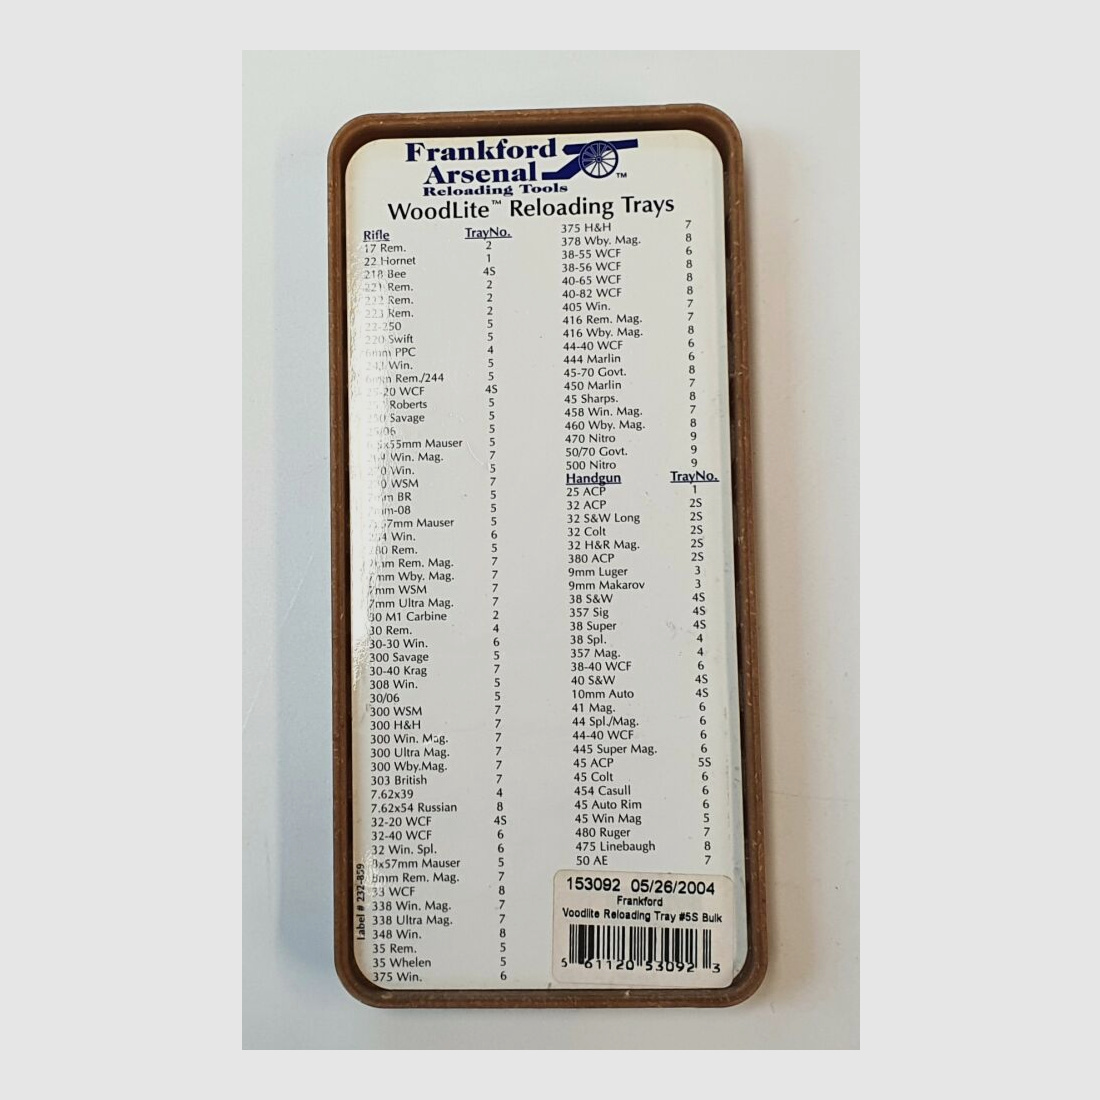 Frankford
Arsenal
Reloading Tools
™
WoodLite™ Reloading Trays
Rifle TrayNo.
17 Rem. 2
22 Hornet 1
218 Bee 4S
221 Rem. 2
222 Rem. 2
223 Rem. 2
22-250 5
220 Swift 5
6mm PPC 4
243 Win. 5
6mm Rem./244 5
25-20 WCF 4S
Roberts 5
250 Savage 5
25/06 5
6.5x55mm Mauser 5
264 Win. Mag. 7
270 Win. 5
270 WSM 7
7mm BR 5
7mm-08 5
7x57mm Mauser 5
Win. 6
280 Rem. 5
7mm Rem. Mag. 7
7mm Wby. Mag. 7
7mm WSM 7
7mm Ultra Mag. 7
30 M1 Carbine 2
30 Rem. 4
30-30 Win. 6
300 Savage 5
30-40 Krag 7
308 Win. 5
30/06 5
300 WSM 7
300 H&H 7
300 Win. Mag. 7
300 Ultra Mag. 7
300 Wby.Mag. 7
303 British 7
7.62x39 4
7.62x54 Russian 8
32-20 WCF 4S
32-40 WCF 6
32 Win. Spl. 6
8x57mm Mauser 5
8mm Rem. Mag. 7
33 WCF 8
338 Win. Mag. 7
338 Ultra Mag. 7
348 Win. 8
35 Rem. 5
35 Whelen 5
375 Win. 6
375 H&H 7
378 Wby. Mag. 8
38-55 WCF 6
38-56 WCF 8
40-65 WCF 8
40-82 WCF 8
405 Win. 7
416 Rem. Mag. 7
416 Wby. Mag. 8
44-40 WCF 6
444 Marlin 6
45-70 Govt. 8
450 Marlin 7
45 Sharps. 8
458 Win. Mag. 7
460 Wby. Mag. 8
470 Nitro 9
50/70 Govt. 9
500 Nitro 9
Handgun TrayNo.
25 ACP 1
32 ACP 2S
32 S&W Long 2S
32 Colt 2S
32 H&R Mag. 2S
380 ACP 2S
9mm Luger 3
9mm Makarov 3
38 S&W 4S
357 Sig 4S
38 Super 4S
38 Spl. 4
357 Mag. 4
38-40 WCF 6
40 S&W 4S
10mm Auto 4S
41 Mag. 6
44 Spl./Mag. 6
44-40 WCF 6
445 Super Mag. 6
45 ACP 5S
45 Colt 6
454 Casull 6
45 Auto Rim 6
45 Win Mag 5
480 Ruger 7
475 Linebaugh 8
50 AE 7
Label # 232-859
153092 05/26/2004
Frankford
Voodlite Reloading Tray #5S Bulk
5 61120 53092 3